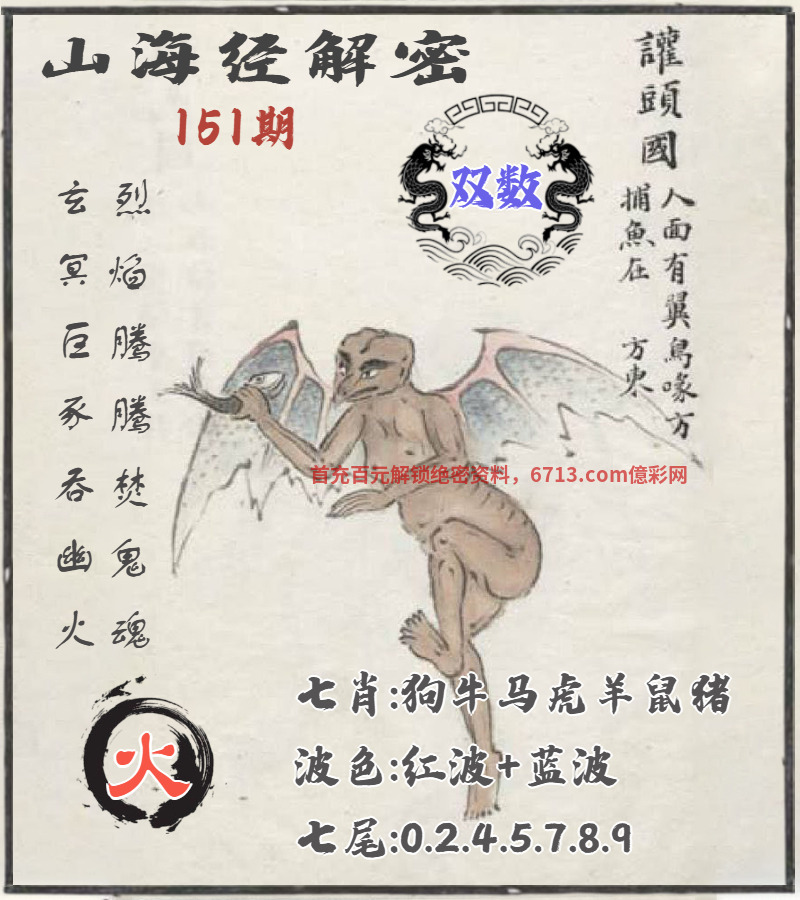 山海经解密
151期
讙頭國
人面有翼鳥喙方
捕魚在 方東
双数
玄冥巨豕吞幽火
烈焰腾腾焚鬼魂
首充百元解锁绝密资料，6713.com億彩网
火
七肖:狗牛马虎羊鼠猪
波色:红波+蓝波
七尾:0.2.4.5.7.8.9